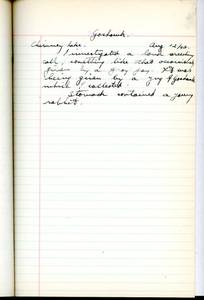 Goshawk.
Chimney Lake. Aug 12/40.
I investigated a loud screeching
call, something like that occasionally
given by a gray jay. It was
being given by a juv ♀ Goshawk
which I collected.
Stomach contained a young
rabbit.